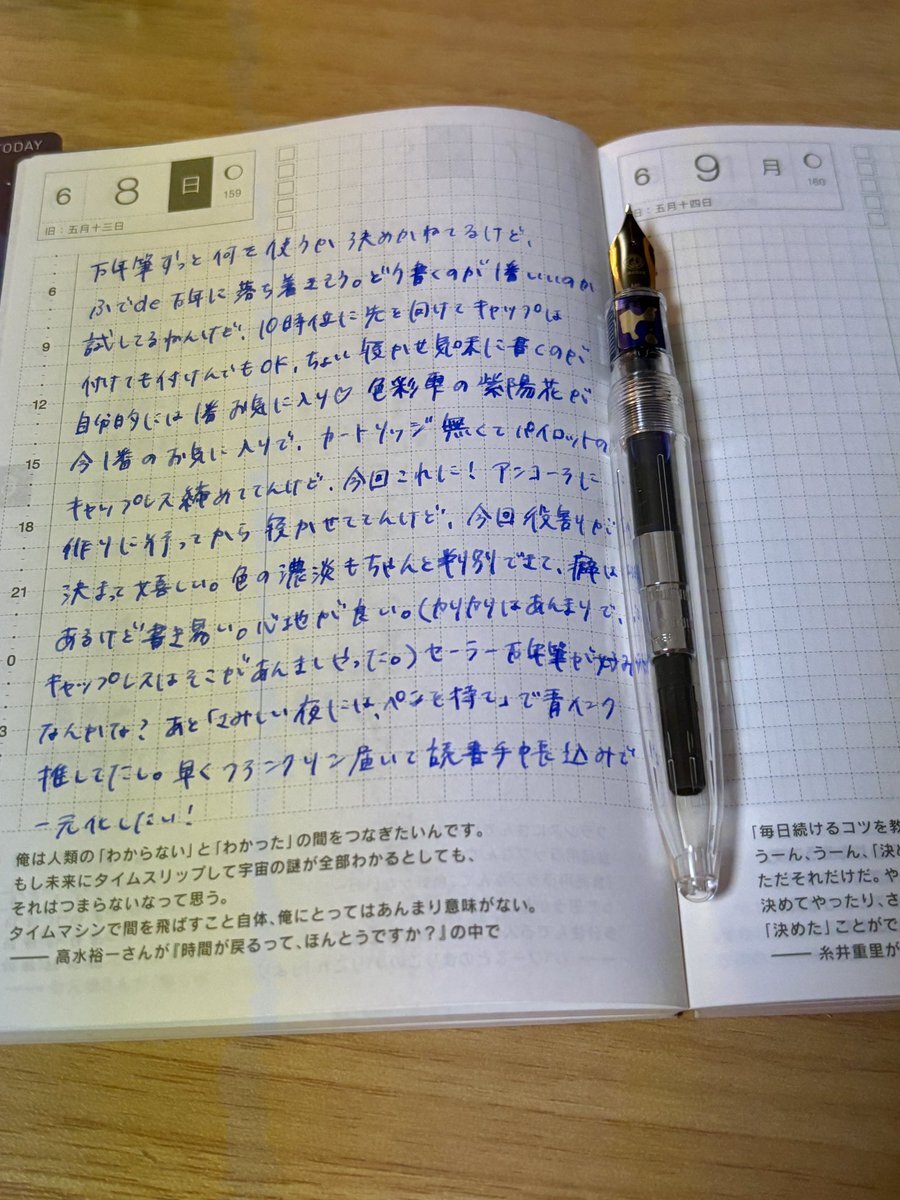 TODAY
6 8 日
159
旧：五月十三日
万年筆ずっと何を使うか決めかねてるけど、
ふでde万年に落ち着きそう。どう書くのが1番いいのか
試してるねんけど、10時位に先を向けてキャップは
付けても付けんでもOK、ちょい寝かせ気味に書くのが
自分的には1番お気に入り♡ 色彩雫の紫陽花が
今1番のお気に入りで、カートリッジ無くてパイロットの
キャップレス 纏めててんけど、今回これに！アンコーラに
作りに行ってから寝かせててんけど、今回役割が
決まって嬉しい。色の濃淡もちゃんと判別できて、癖は
あるけど書き易い。心地が良い。(カリカリはあんまりで、
キャップレスはそこがあんましやった。)セーラー万年筆が好み
なんかな？あと「さみしい夜には、ペンを持て」で青インク
推してたし。早くフランクリン届いて読書手帳込みで
一元化したい！
俺は人類の「わからない」と「わかった」の間をつなぎたいんです。
もし未来にタイムスリップして宇宙の謎が全部わかるとしても、
それはつまらないなって思う。
タイムマシンで間を飛ばすこと自体、俺にとってはあんまり意味がない。
―― 高水裕一さんが『時間が戻るって、ほんとうですか？』の中で
6
9
12
15
18
21
0
3
6 9 月
160
旧：五月十四日
「毎日続けるコツを教
うーん、うーん、「決め
ただそれだけだ。や
決めてやったり、さ
「決めた」ことがで
―― 糸井重里が